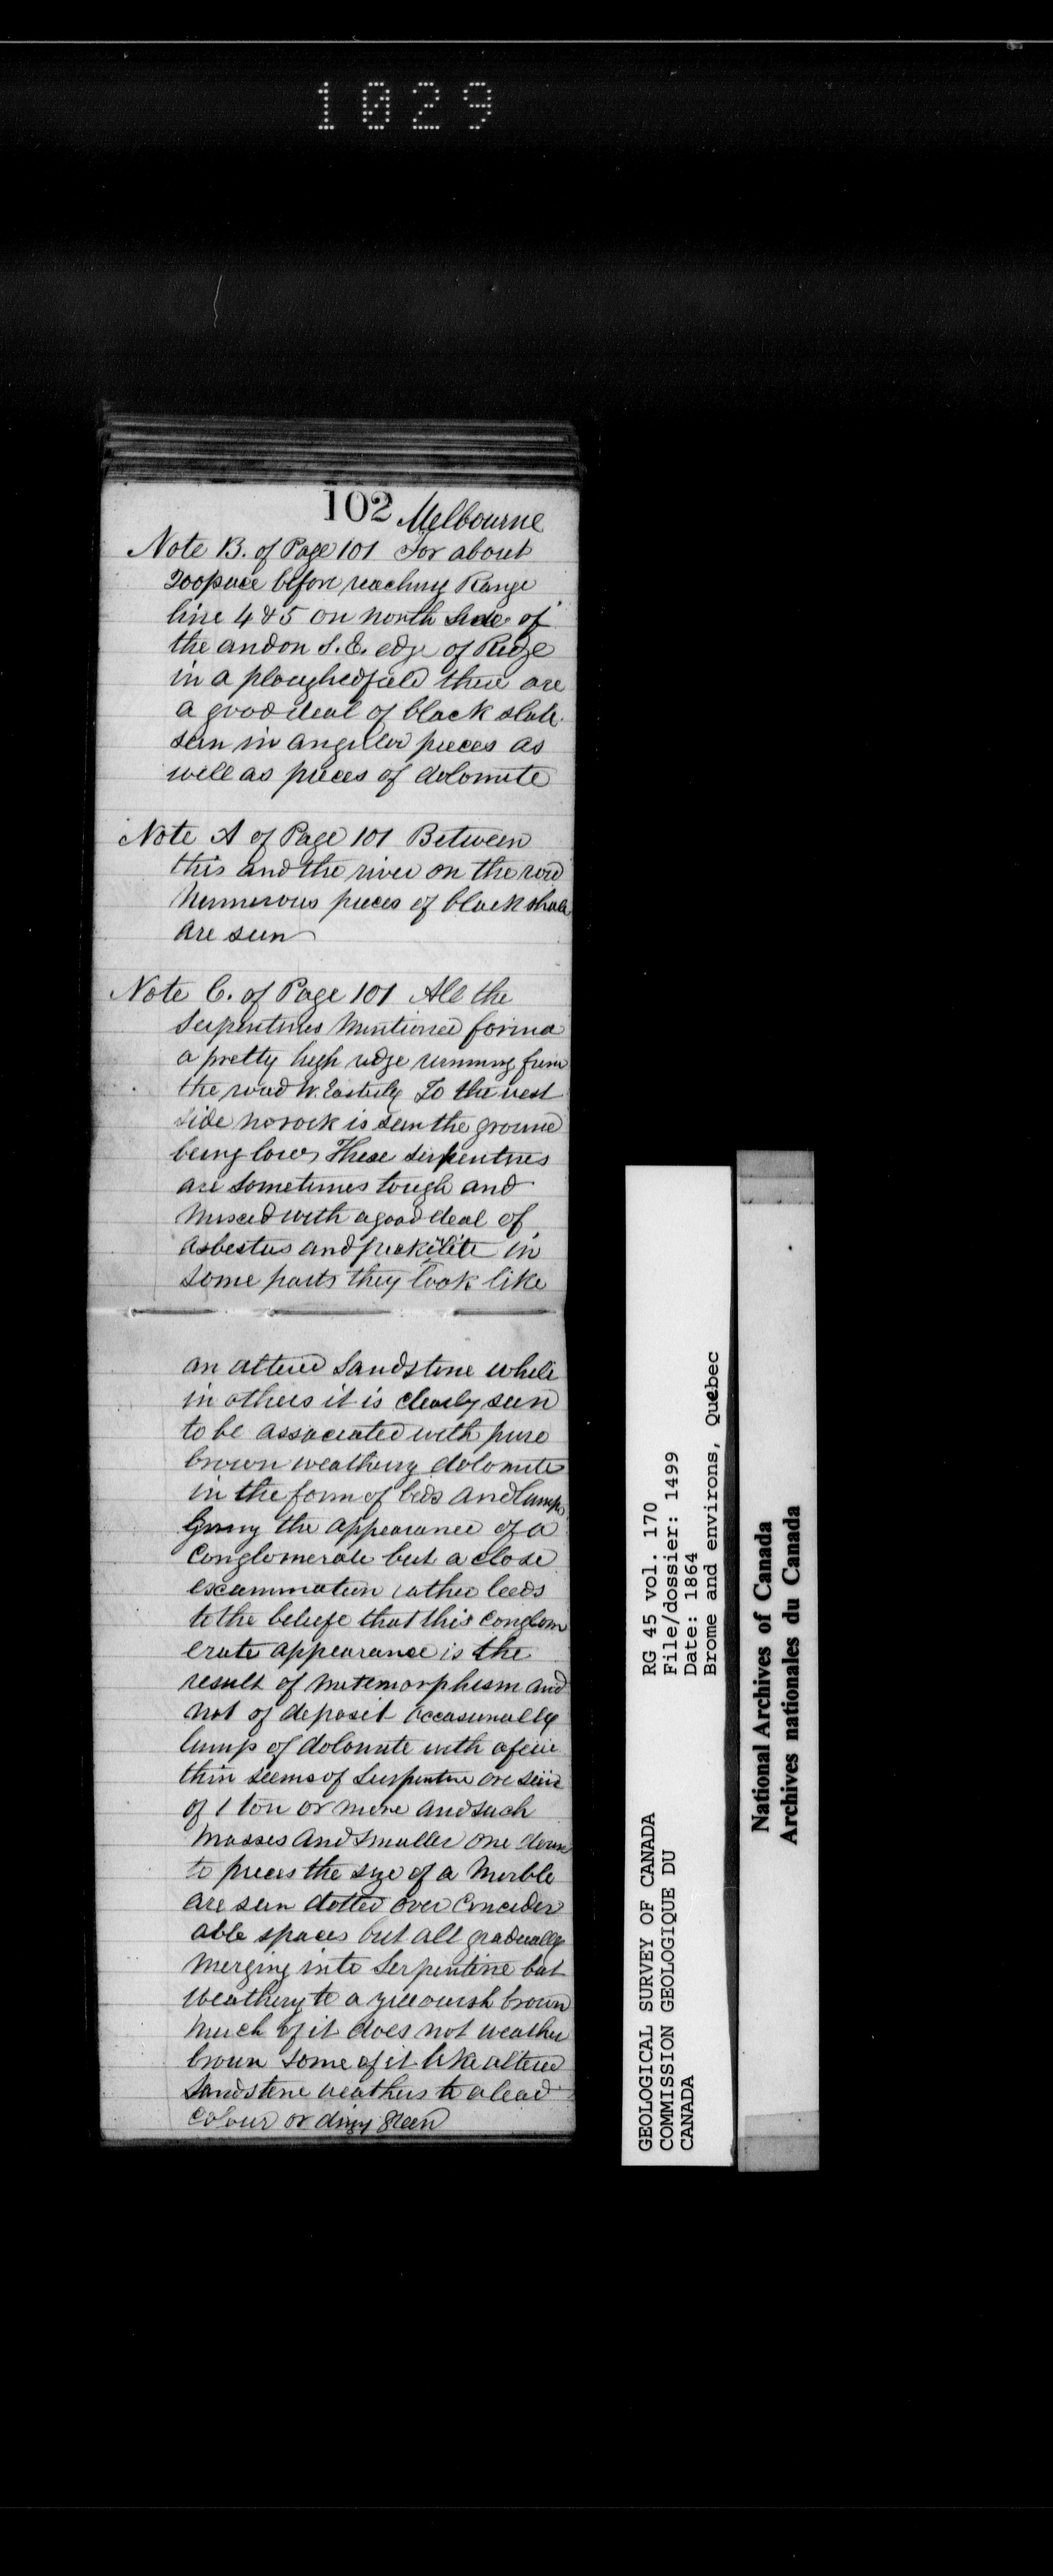 1029
102 Melbourne
Note B. of Page 101 For about
200 pace before reaching Range
line 4 & 5 on north side of
the and on S.E. edge of Ridge
in a ploughed field there are
a good deal of black slate
seen in angular pieces as
well as pieces of dolomite
Note A of Page 101 Between
this and the river on the road
numerous pieces of black shale
are seen
Note C. of Page 101 All the
Serpentines mentioned form a
a pretty high ridge running from
the road N. Easterly To the west
side no rock is seen the ground
being low These serpentines
are sometimes tough and
mixed with a good deal of
asbestus and in
some parts they look like
an altered sandstone while
in others it is clearly seen
to be associated with pure
brown weathering dolomite
in the form of beds and lumps
Giving the appearance of a
Conglomerate but a close
excammation rather leeds
to the beleife that this conglom
erate appearance is the
result of metemorphism and
not of deposit occasionally
lumps of dolomite with a few
thin seems of Surpentine are seen
of 1 ton or more and such
masses and smaller one down
to pieces the size of a marble
are seen dotted over Concider
able spaces but all gradually
merging into Serpentine but
weathering to a yellowish brown
much of it does not weather
brown some of it like altered
sandstone weathers to a lead
colour or dingy green
GEOLOGICAL SURVEY OF CANADA
COMMISSION GEOLOGIQUE DU
CANADA
RG 45 vol. 170
File/dossier: 1499
Date: 1864
Brome and environs, Quebec
National Archives of Canada
Archives nationales du Canada